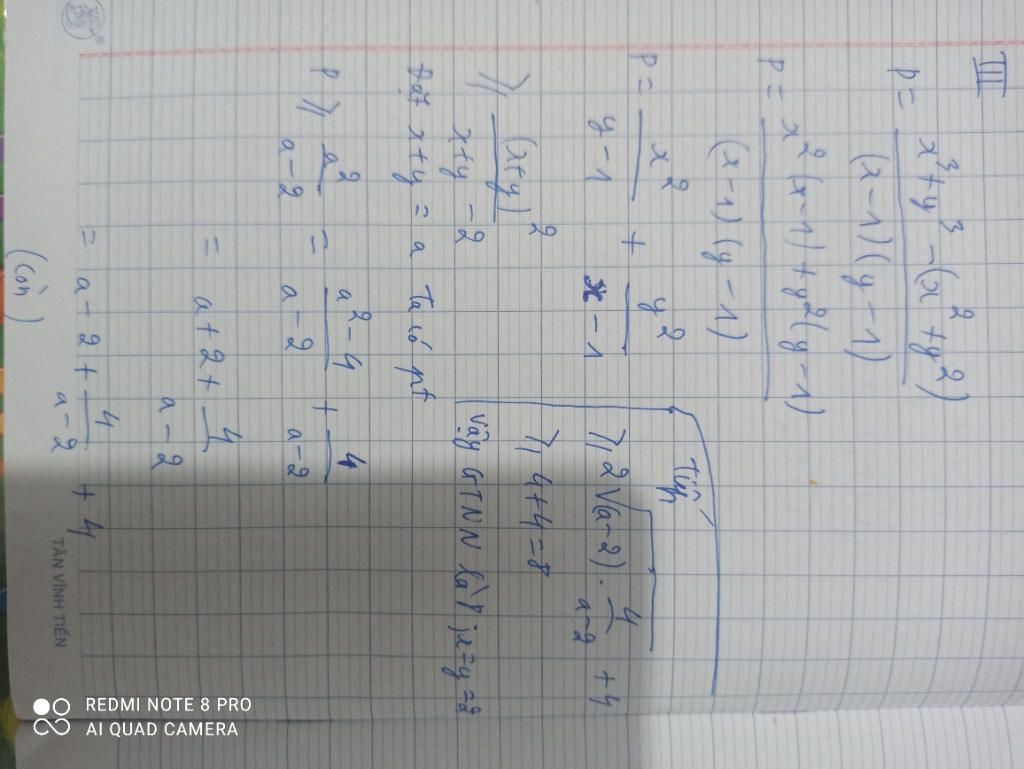 III
P = \frac{x^3+y^3-(x^2+y^2)}{(x-1)(y-1)}
P = \frac{x^2(x-1)+y^2(y-1)}{(x-1)(y-1)}
P = \frac{x^2}{y-1} + \frac{y^2}{x-1}
⩾ \frac{(x+y)^2}{x+y-2}
Đặt x+y = a Ta có pt
P ⩾ \frac{a^2}{a-2} = \frac{a^2-4}{a-2} + \frac{4}{a-2}
= a+2+ \frac{4}{a-2}
= a-2+ \frac{4}{a-2} + 4
(Còn)
Tiếp
⩾ 2\sqrt{(a-2).\frac{4}{a-2}} +4
⩾ 4+4=8
Vậy GTNN là P ; x=y=2
TÂN VĨNH TIẾN
REDMI NOTE 8 PRO
AI QUAD CAMERA